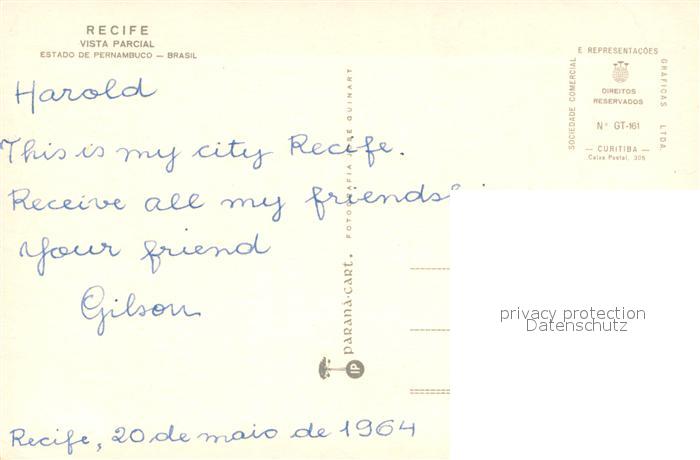 RECIFE
VISTA PARCIAL
ESTADO DE PERNAMBUCO — BRASIL
Harold
This is my city Recife.
Receive all my friends
Your friend
Gilson
Recife, 20 de maio de 1964
FOTOGRAFIA JOSÉ GUINART
PARANÁ-CART.
IP
SOCIEDADE COMERCIAL
E REPRESENTAÇÕES
GRÁFICAS LTDA.
DIREITOS
RESERVADOS
Nº GT-161
— CURITIBA —
Caixa Postal, 305
privacy protection
Datenschutz